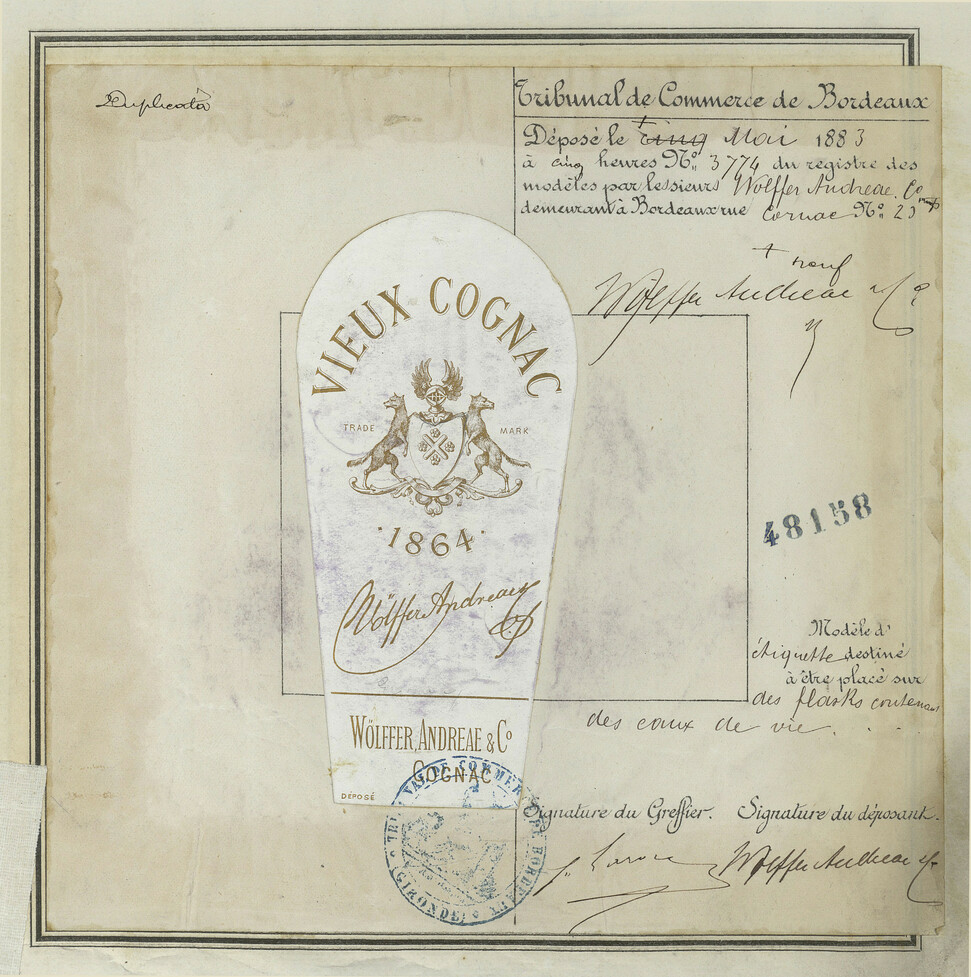 Duplicata
Tribunal de Commerce de Bordeaux
Déposé le + cinq Mai 1883
à cinq heures No. 3774 du registre des
modèles par les sieurs Wolffer Andreae. Co
demeurant à Bordeaux rue Cornac No. 23
+ neuf
Wölffer Andreae & Co
VIEUX COGNAC
TRADE MARK
·1864·
Wölffer Andreae & Co
WÖLFFER, ANDREAE & Co
COGNAC
DÉPOSÉ
48158
Modèle d'
étiquette destiné
à être placé sur
des flasks contenant
des eaux de vie.
TRIBUNAL DE COMMERCE DE BORDEAUX
(GIRONDE)
Signature du Greffier. Signature du déposant.
Wölffer Andreae & Co